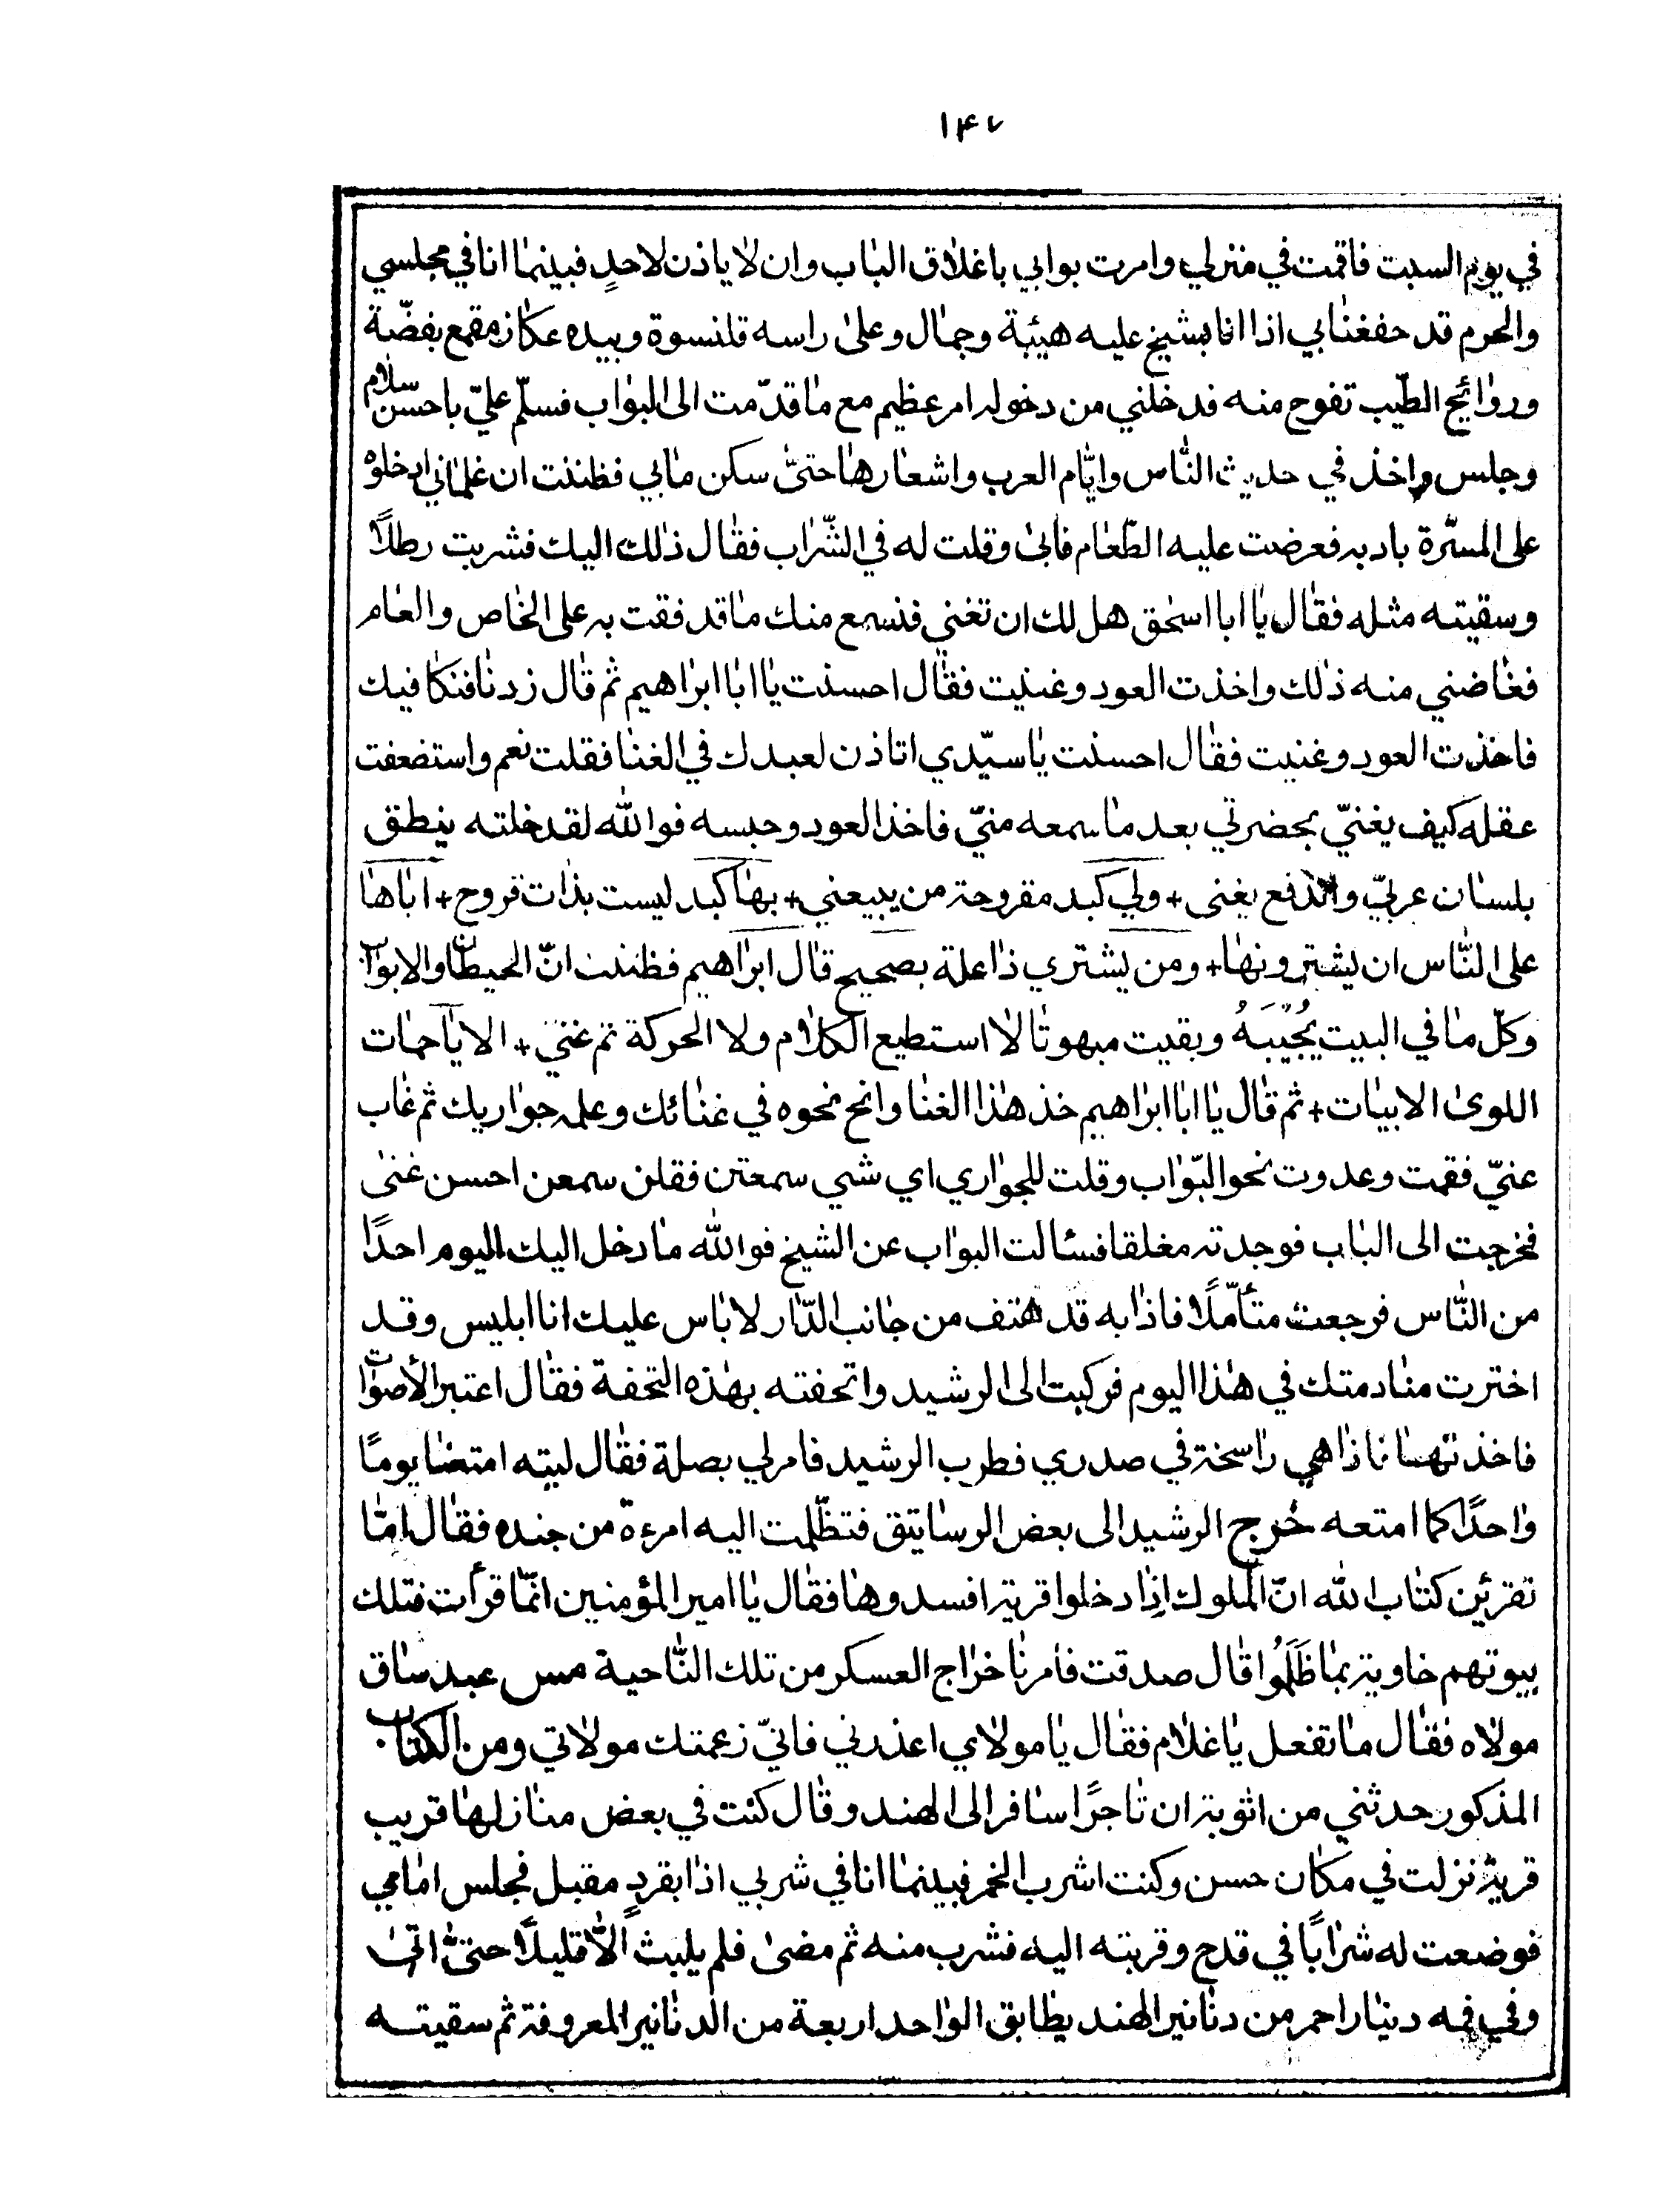 ١٤٧
في يوم السبت فاقمت في منزلي وامرت بوابي باغلاق الباب وان لا ياذن لاحدٍ فبينما انا في مجلسي
والحرم قد حففنا بي اذا انا بشيخ عليه هيبة وجمال وعلى راسه قلنسوة وبيده عكاز مقمع بفضّة
وروائح الطّيب تفوح منه فدخلني من دخوله امر عظيم مع ما قدّمت الى البواب فسلّم عليّ باحسن سلام
وجلس واخذ في حديث النّاس وايّام العرب واشعارها حتّى سكن مابي فظننت ان غلماني ادخلوه
على المسرّة بادبه فعرضت عليه الطّعام فابى وقلت له في الشّراب فقال ذلك اليك فشربت رطلاً
وسقيته مثله فقال يا ابا اسحق هل لك ان تغني فنسمع منك ما قد فقت به على الخاص والعام
فغاضني منه ذلك واخذت العود وغنيت فقال احسنت يا ابا ابراهيم ثم قال زدنا فنكافيك
فاخذت العود وغنيت فقال احسنت يا سيّدي اتاذن لعبدك في الغنا فقلت نعم واستضعفت
عقله كيف يغنيّ بحضرتي بعد ما سمعه منيّ فاخذ العود وحبسه فوالله لقد خلته ينطق
بلسان عربيّ واندفع يغنى + ولي كبد مقروحة من يبيعني + بها كبد ليست بذات قروح + اباها
على النّاس ان يشترونها + ومن يشتري ذا علة بصحيح قال ابراهيم فظننت انّ الحيطان والابواب
وكلّ ما في البيت يُجُيبَهُ وبقيت مبهوتا لا استطيع الكلام ولا الحركة ثم غنى + الا يا حمات
اللوى الابيات + ثم قال يا ابا ابراهيم خذ هذا الغنا وانح نحوه في غنائك وعلمه جواريك ثم غاب
عنيّ فقمت وعدوت نحو البّواب وقلت للجواري اي شي سمعتن فقلن سمعن احسن غنى
فخرجت الى الباب فوجدته مغلقا فسئالت البواب عن الشيخ فوالله ما دخل اليك اليوم احدًا
من النّاس فرجعت متأمّلًا فاذا به قد هتف من جانب الدّار لا باس عليك انا ابليس وقد
اخترت منادمتك في هذا اليوم فركبت الى الرشيد واتحفته بهذه التحفة فقال اعتبر الأصوات
فاخذتها فاذا هي راسخة في صدري فطرب الرشيد فامر لي بصلة فقال ليته امتعنا يومًا
واحدًا كما امتعه خرج الرشيد الى بعض الرساتيق فتظّلمت اليه امرءة من جنده فقال امّا
تقرئين كتاب الله انّ الملوك اذا دخلوا قرية افسدوها فقال يا امير المؤمنين انمّا قرأت فتلك
بيوتهم خاوية بما ظَلَمُوا قال صدقت فامرنا خراج العسكر من تلك النّاحية مس عبد ساق
مولاه فقال ما تفعل يا غلام فقال يا مولاي اعذرني فانيّ زعمتك مولاتي ومن الكتاب
المذكور حدثني من اثوبة ان تاجرًا سافر الى الهند وقال كنت في بعض منازلها قريب
قرية نزلت في مكان حسن وكنت اشرب الخمر فبينما انا في شربي اذا بقردٍ مقبل فجلس امامي
فوضعت له شرابًا في قدح وقربته اليه فشرب منه ثم مضى فلم يلبث الّا قليلًا حتىّ اتى
وفي فمه دينارا حمر من دنانير الهند يطابق الواحد اربعة من الدنانير المعروفة ثم سقيته